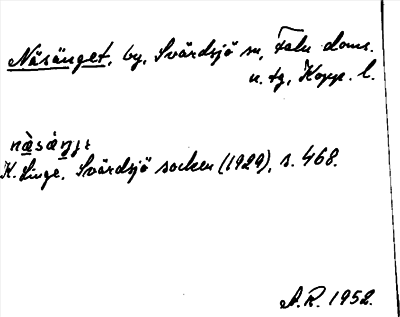 Näsänget, by, Svärdsjö sn, Falu doms.
n. tg, Kopp. l.
K. Linge, Svärdsjö socken (1929), s. 468.
A.R. 1952.